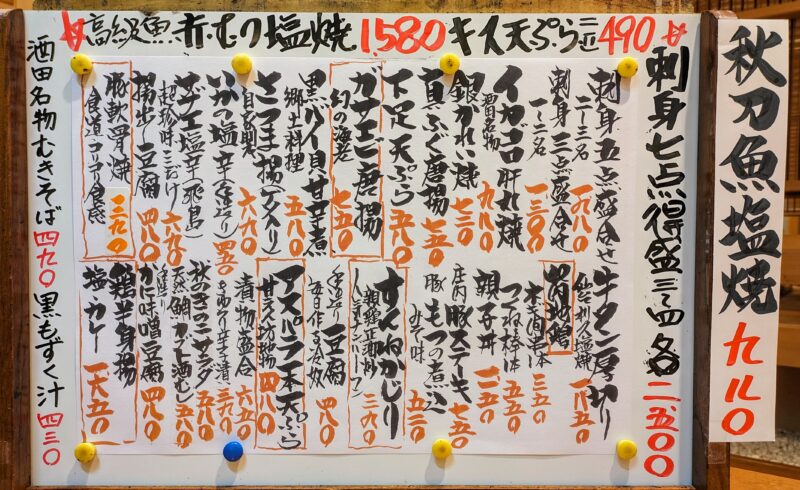 高級魚 赤むつ塩焼 1.580 キス天ぷら 三匹 490
秋刀魚塩焼 九八〇
刺身七点得盛 三〜四名 二五〇〇
刺身五点盛合せ
二〜三名 一九八〇
刺身三点盛合せ
一〜二名 一三〇〇
イカゴロ肝ホイル焼
酒田名物 九八〇
銀かれい焼 七三〇
真ふぐ唐揚 七五〇
下足天ぷら 五八〇
ガサエビ唐揚
幻の海老 七五〇
黒バイ貝甘辛煮
郷土料理 五八〇
さつま揚(アメリ)
自家製 六六〇
いかの塩辛(手造り) 四五〇
サザエ塩辛(飛島)
超珍味ここだけ 六六〇
揚出し豆腐 四八〇
豚軟骨焼
食道 コリコリ食感 一三九〇
牛タン厚切り
一八五〇
本日の串二本 三五〇
つくね棒一本 五五〇
親子丼 一一五〇
庄内豚ステーキ 七五〇
豚もつの煮込
みそ味 五三〇
すんねかじり
人気ナンバーワン 三九〇
手造り豆腐
四八〇
アスパラ一本天ぷら
四八〇
着物盛合 六五〇
きゅうり辛子漬 三九〇
秋のきのこサラダ 五八〇
天然鯛カブト酒むし 五八〇
かに味噌豆腐 四八〇
鶏半身揚
塩・カレー 一六五〇
酒田名物むきそば 四九〇 黒もずく汁 四三〇